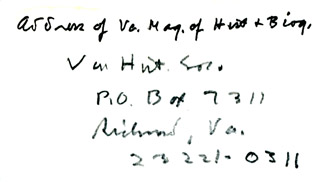 Address of Va. Mag. of Hist + Biog.
Va Hist. Soc.
P.O. Box 7311
Richmond, Va.
23221-0311